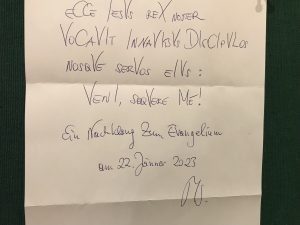 ECCE IESVS REX NOSTER
VOCAVIT INNAVIBVS DISCIPVLOS
NOSQVE SERVOS EIVS:
VENI, SEQVERE ME!
Ein Nachklang zum Evangelium
am 22. Jänner 2023